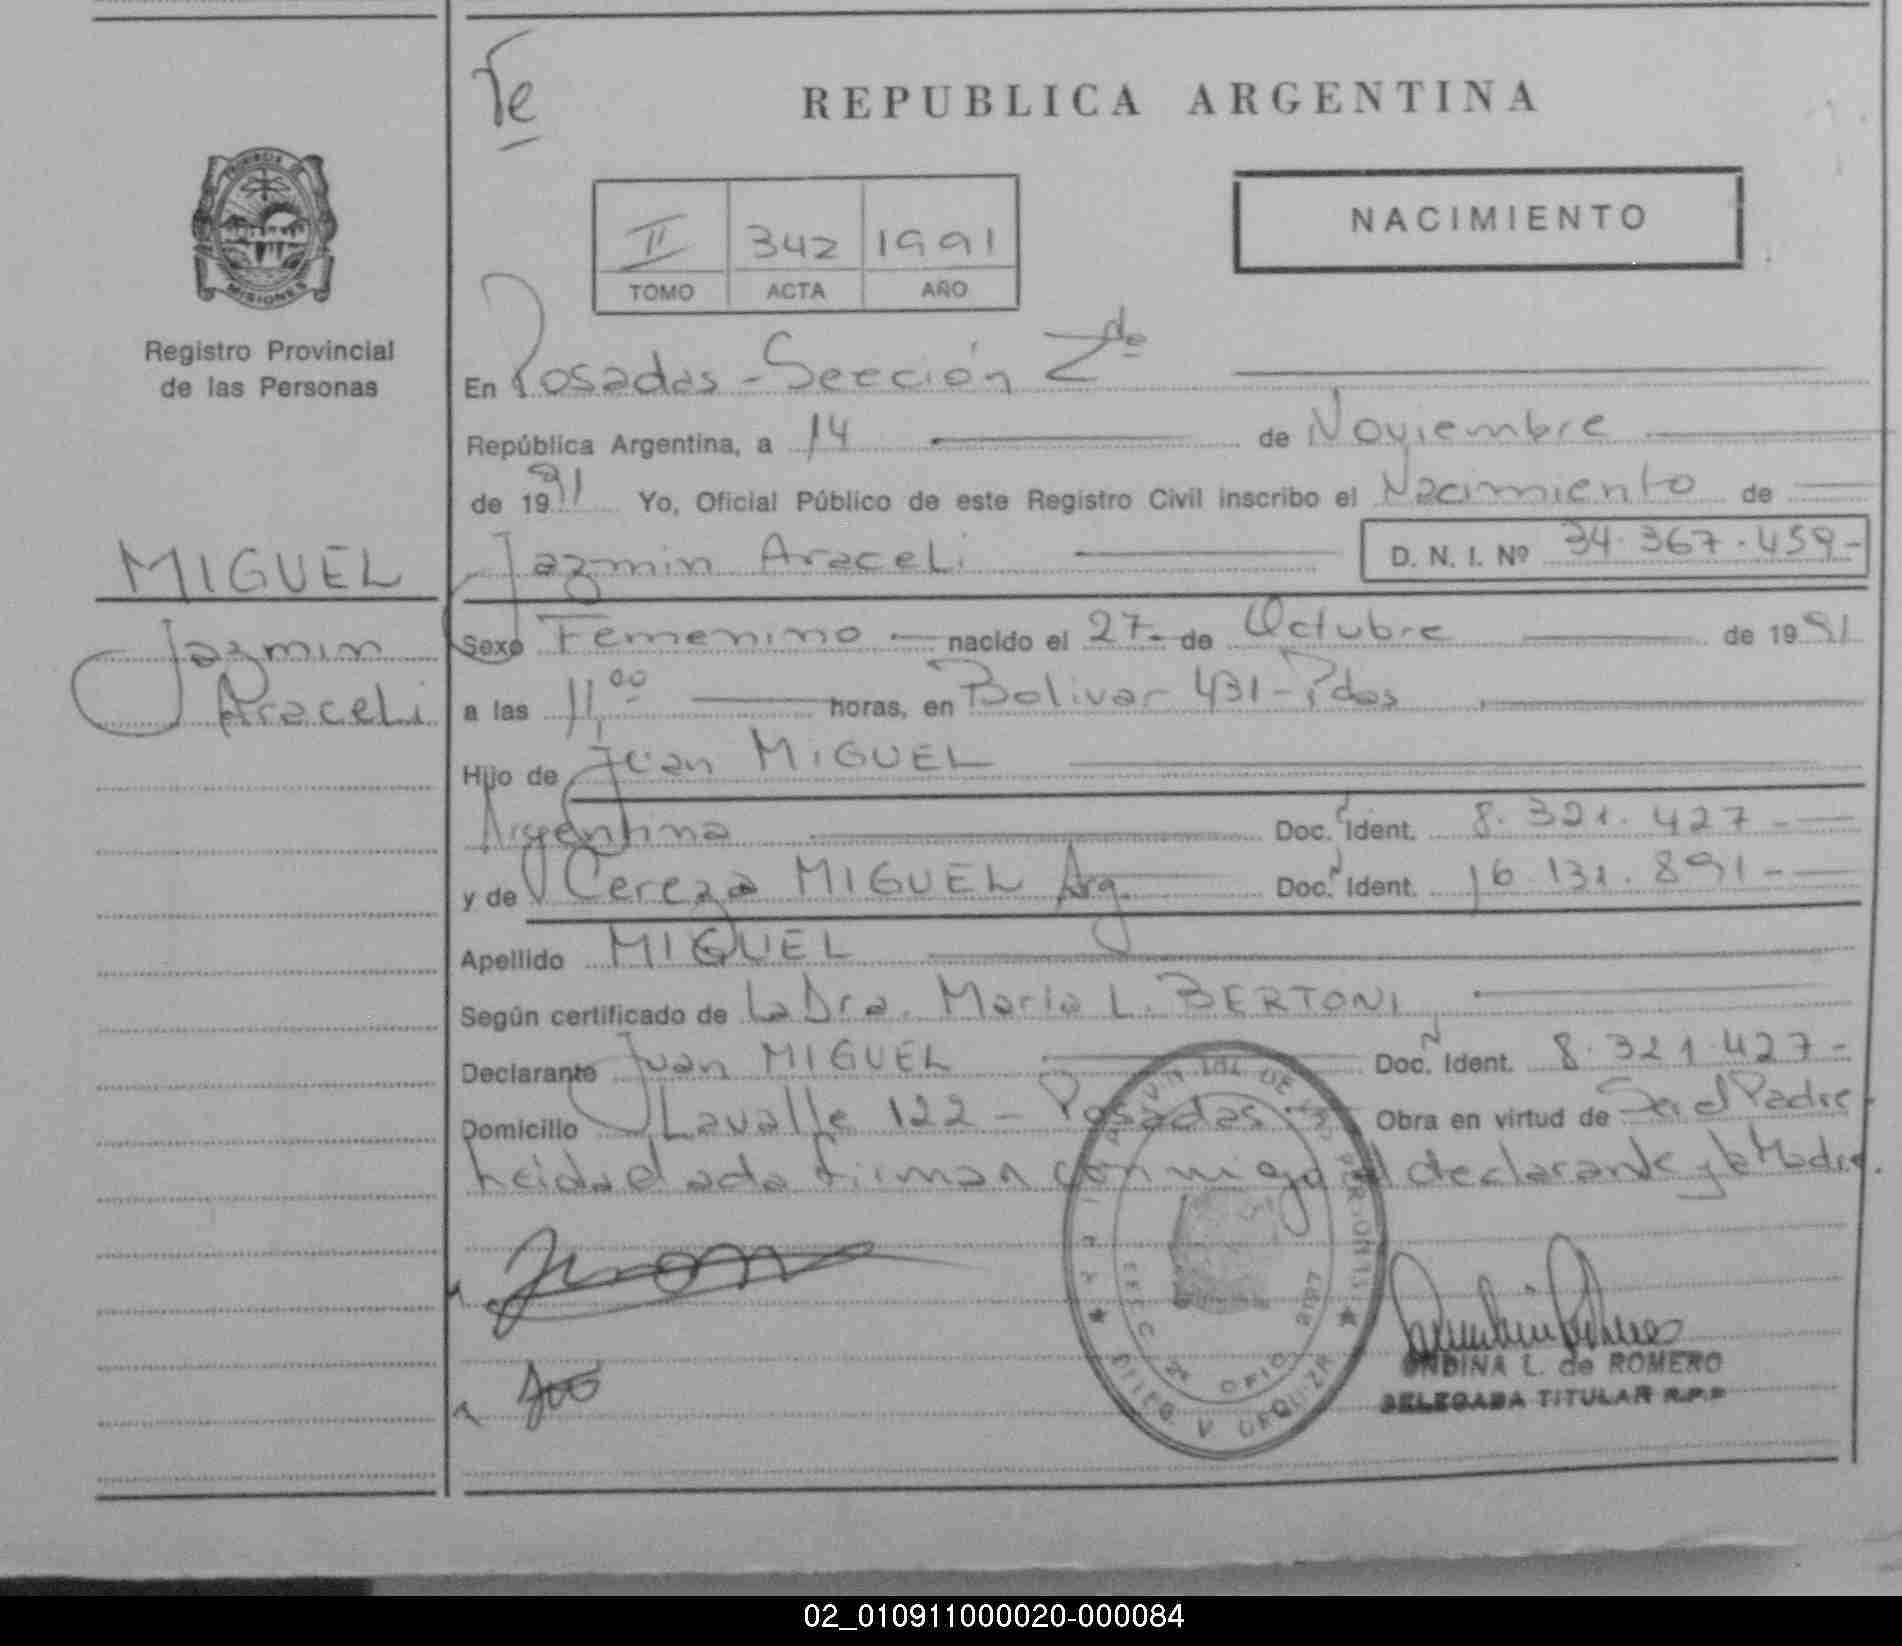 Te
REPUBLICA ARGENTINA
PROVINCIA DE
MISIONES
Registro Provincial
de las Personas
II 342 1991
TOMO ACTA AÑO
NACIMIENTO
En Posadas - Sección 2da
República Argentina, a 14 de Noviembre
de 1991 Yo, Oficial Público de este Registro Civil inscribo el Nacimiento de
Jazmin Araceli D. N. I. Nº 34.367.459-
MIGUEL
Jazmin
Araceli
Sexo Femenino nacido el 27 de Octubre de 1991
a las 11,00 horas, en Bolivar 431 - Pdas
Hijo de Juan MIGUEL
Argentina Doc. Ident. 8.321.427-
y de Cereza MIGUEL Arg. Doc. Ident. 16.131.891-
Apellido MIGUEL
Según certificado de La Dra. Maria L. BERTONI
Declarante Juan MIGUEL Doc. Ident. 8.321.427-
Domicilio Lavalle 122 - Posadas Obra en virtud de Ser el Padre.
Leida el acta firman conmigo el declarante y la Madre.
ONDINA L. de ROMERO
DELEGADA TITULAR R.P.P
02_010911000020-000084